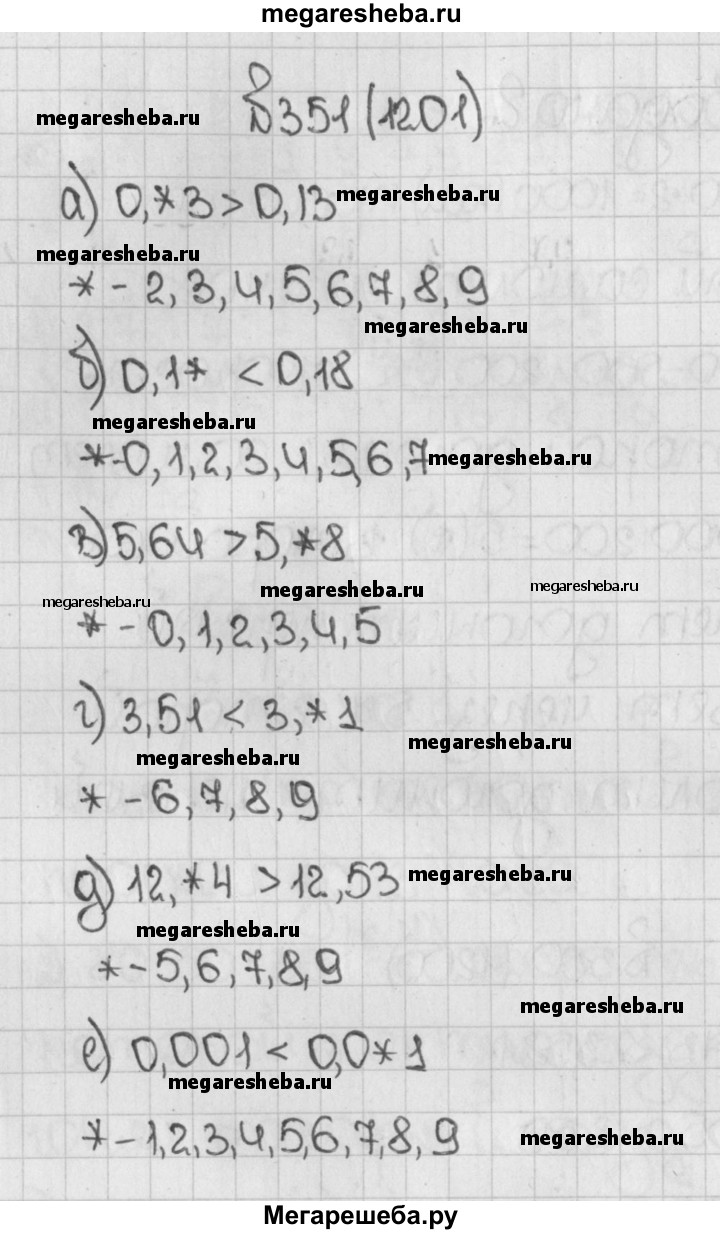 megaresheba.ru
№351(1201)
megaresheba.ru
а) 0,*3>0,13 megaresheba.ru
megaresheba.ru
* - 2,3,4,5,6,7,8,9
megaresheba.ru
б) 0,1* <0,18
megaresheba.ru
*-0,1,2,3,4,5,6,7 megaresheba.ru
в) 5,64 >5,*8
megaresheba.ru megaresheba.ru
megaresheba.ru
* - 0,1,2,3,4,5
г) 3,51 < 3,*1
megaresheba.ru megaresheba.ru
* - 6,7,8,9
д) 12,*4 >12,53 megaresheba.ru
megaresheba.ru
* - 5,6,7,8,9
megaresheba.ru
е) 0,001 < 0,0*1
megaresheba.ru
* - 1,2,3,4,5,6,7,8,9 megaresheba.ru
Мегарешеба.ру